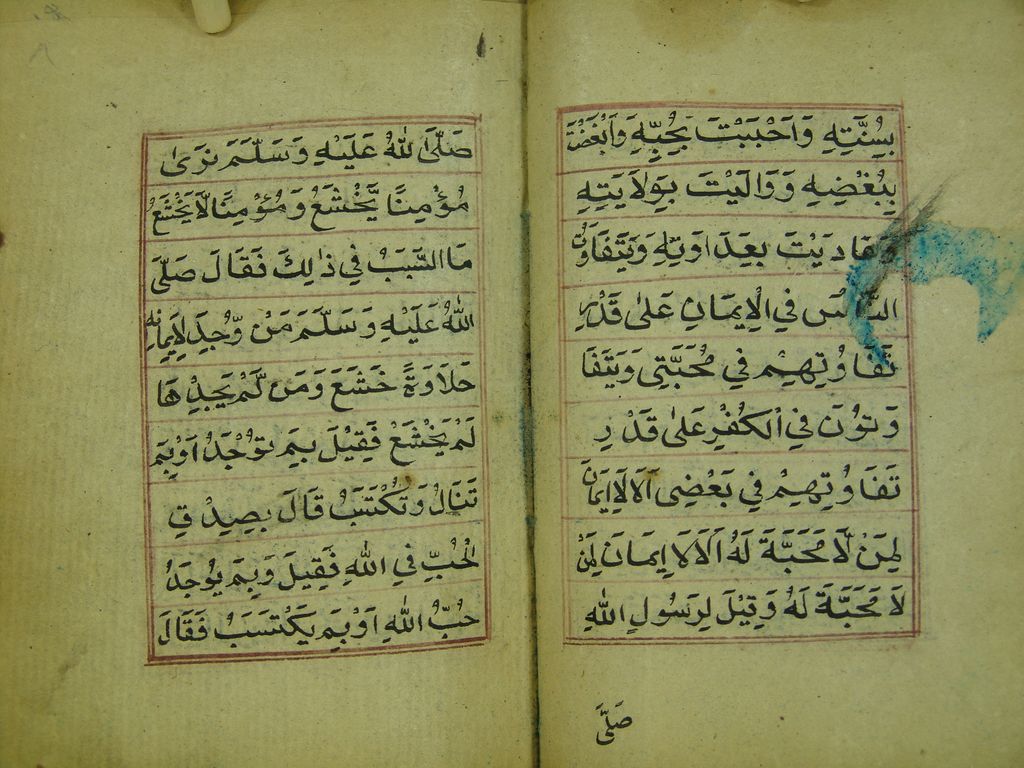 بِسُنَّتِهِ وَاَحْبَبْتَ بِحُبِّهِ وَاَبْغَضْتَ
بِبُغْضِهِ وَوَالَيْتَ بِوَلَايَتِهِ
وَعَادَيْتَ بِعَدَاوَتِهِ وَيَتَفَاوَتُ
النَّاسُ فِي الْاِيمَانِ عَلٰى قَدْرِ
تَفَاوُتِهِمْ فِي مُحَبَّتِي وَيَتَفَا
وَتُوْنَ فِي الْكُفْرِ عَلٰى قَدْرِ
تَفَاوُتِهِمْ فِي بَغْضِي اَلَا لَا اِيمَانَ
لِمَنْ لَا مَحَبَّةَ لَهُ اَلَا لَا اِيمَانَ لِمَنْ
لَا مَحَبَّةَ لَهُ وَقِيْلَ لِرَسُولِ اللهِ
صَلَّى
صَلَّى اللهُ عَلَيْهِ وَسَلَّمَ نَرٰى
مُؤْمِنًا يَّخْشَعُ وَمُؤْمِنًا لَّا يَخْشَعُ
مَا السَّبَبُ فِي ذٰلِكَ فَقَالَ صَلَّى
اللهُ عَلَيْهِ وَسَلَّمَ مَنْ وَّجَدَ لِاِيمَانِهِ
حَلَاوَةً خَشَعَ وَمَن لَّمْ يَجِدْهَا
لَمْ يَخْشَعْ فَقِيْلَ بِمَ تُوْجَدُ اَوْ بِمَ
تَنَالُ وَتُكْتَسَبُ قَالَ بِصِدْقِ
الْحُبِّ فِي اللهِ فَقِيلَ وَبِمَ يُوْجَدُ
حُبُّ اللهِ اَوْ بِمَ يَكْتَسَبُ فَقَالَ